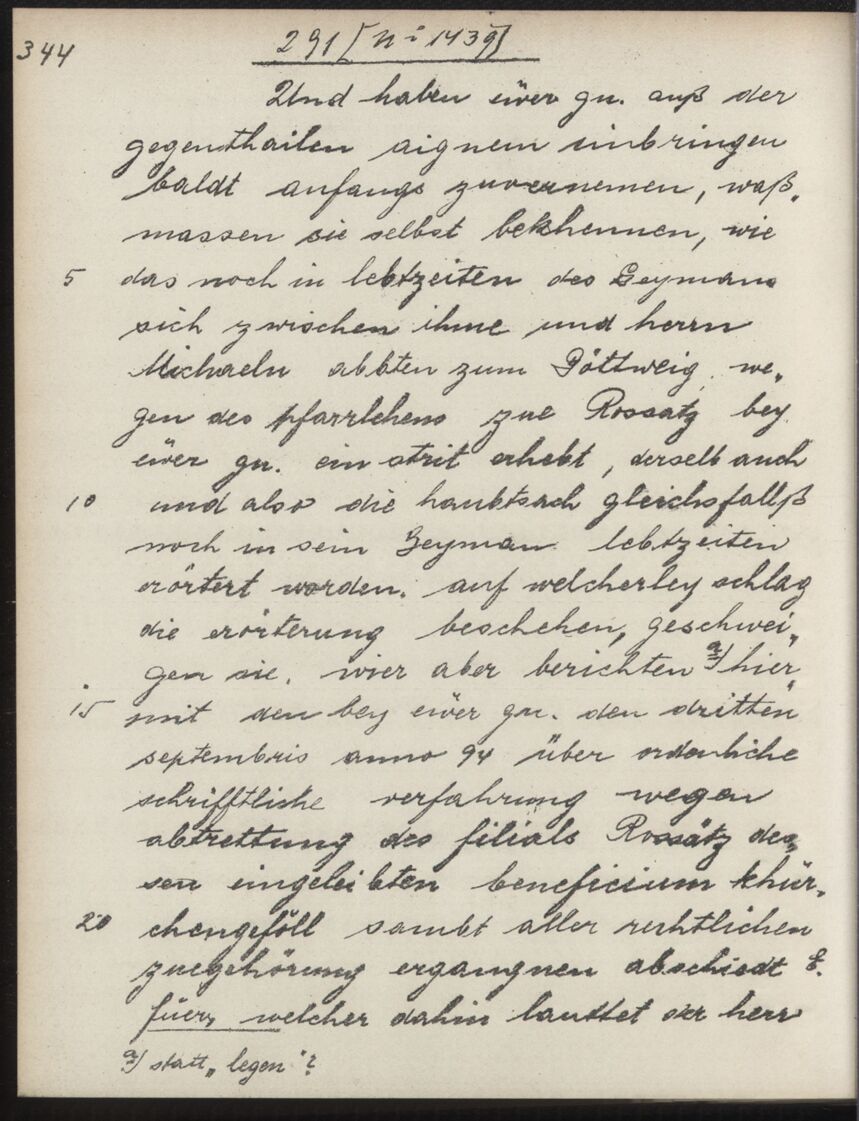 344
291 [N° 1439]
Und haben eüer gn. auß der
gegenthailen aignem einbringen
baldt anfangs zuvernemen, waß„
massen sie selbst bekhennen, wie
5 das noch in lebtzeiten des Geymans
sich zwischen ihme und herrn
Michaeln abbten zum Göttweig we„
gen des pfarrlehens zue Rossatz bey
eüer gn. ein strit erhebt, derselb auch
10 und also die haubtsach gleichsfallß
noch in sein Geyman lebtzeiten
erörtert worden. auf welcherley schlag
die erörterung beschehen, geschwei„
gen sie. wier aber berichten a) hier„
15 mit den bey eüer gn. den dritten
septembris anno 94 über ordenliche
schrifftliche verfahrung wegen
abtrettung des filials Rossätz des„
sen eingeleibten beneficium khür„
20 chengeföll sambt aller rechtlichen
zuegehörung ergangnen abschiedt E.
füer, welcher dahin lauttet der herr
a) statt „legen"?